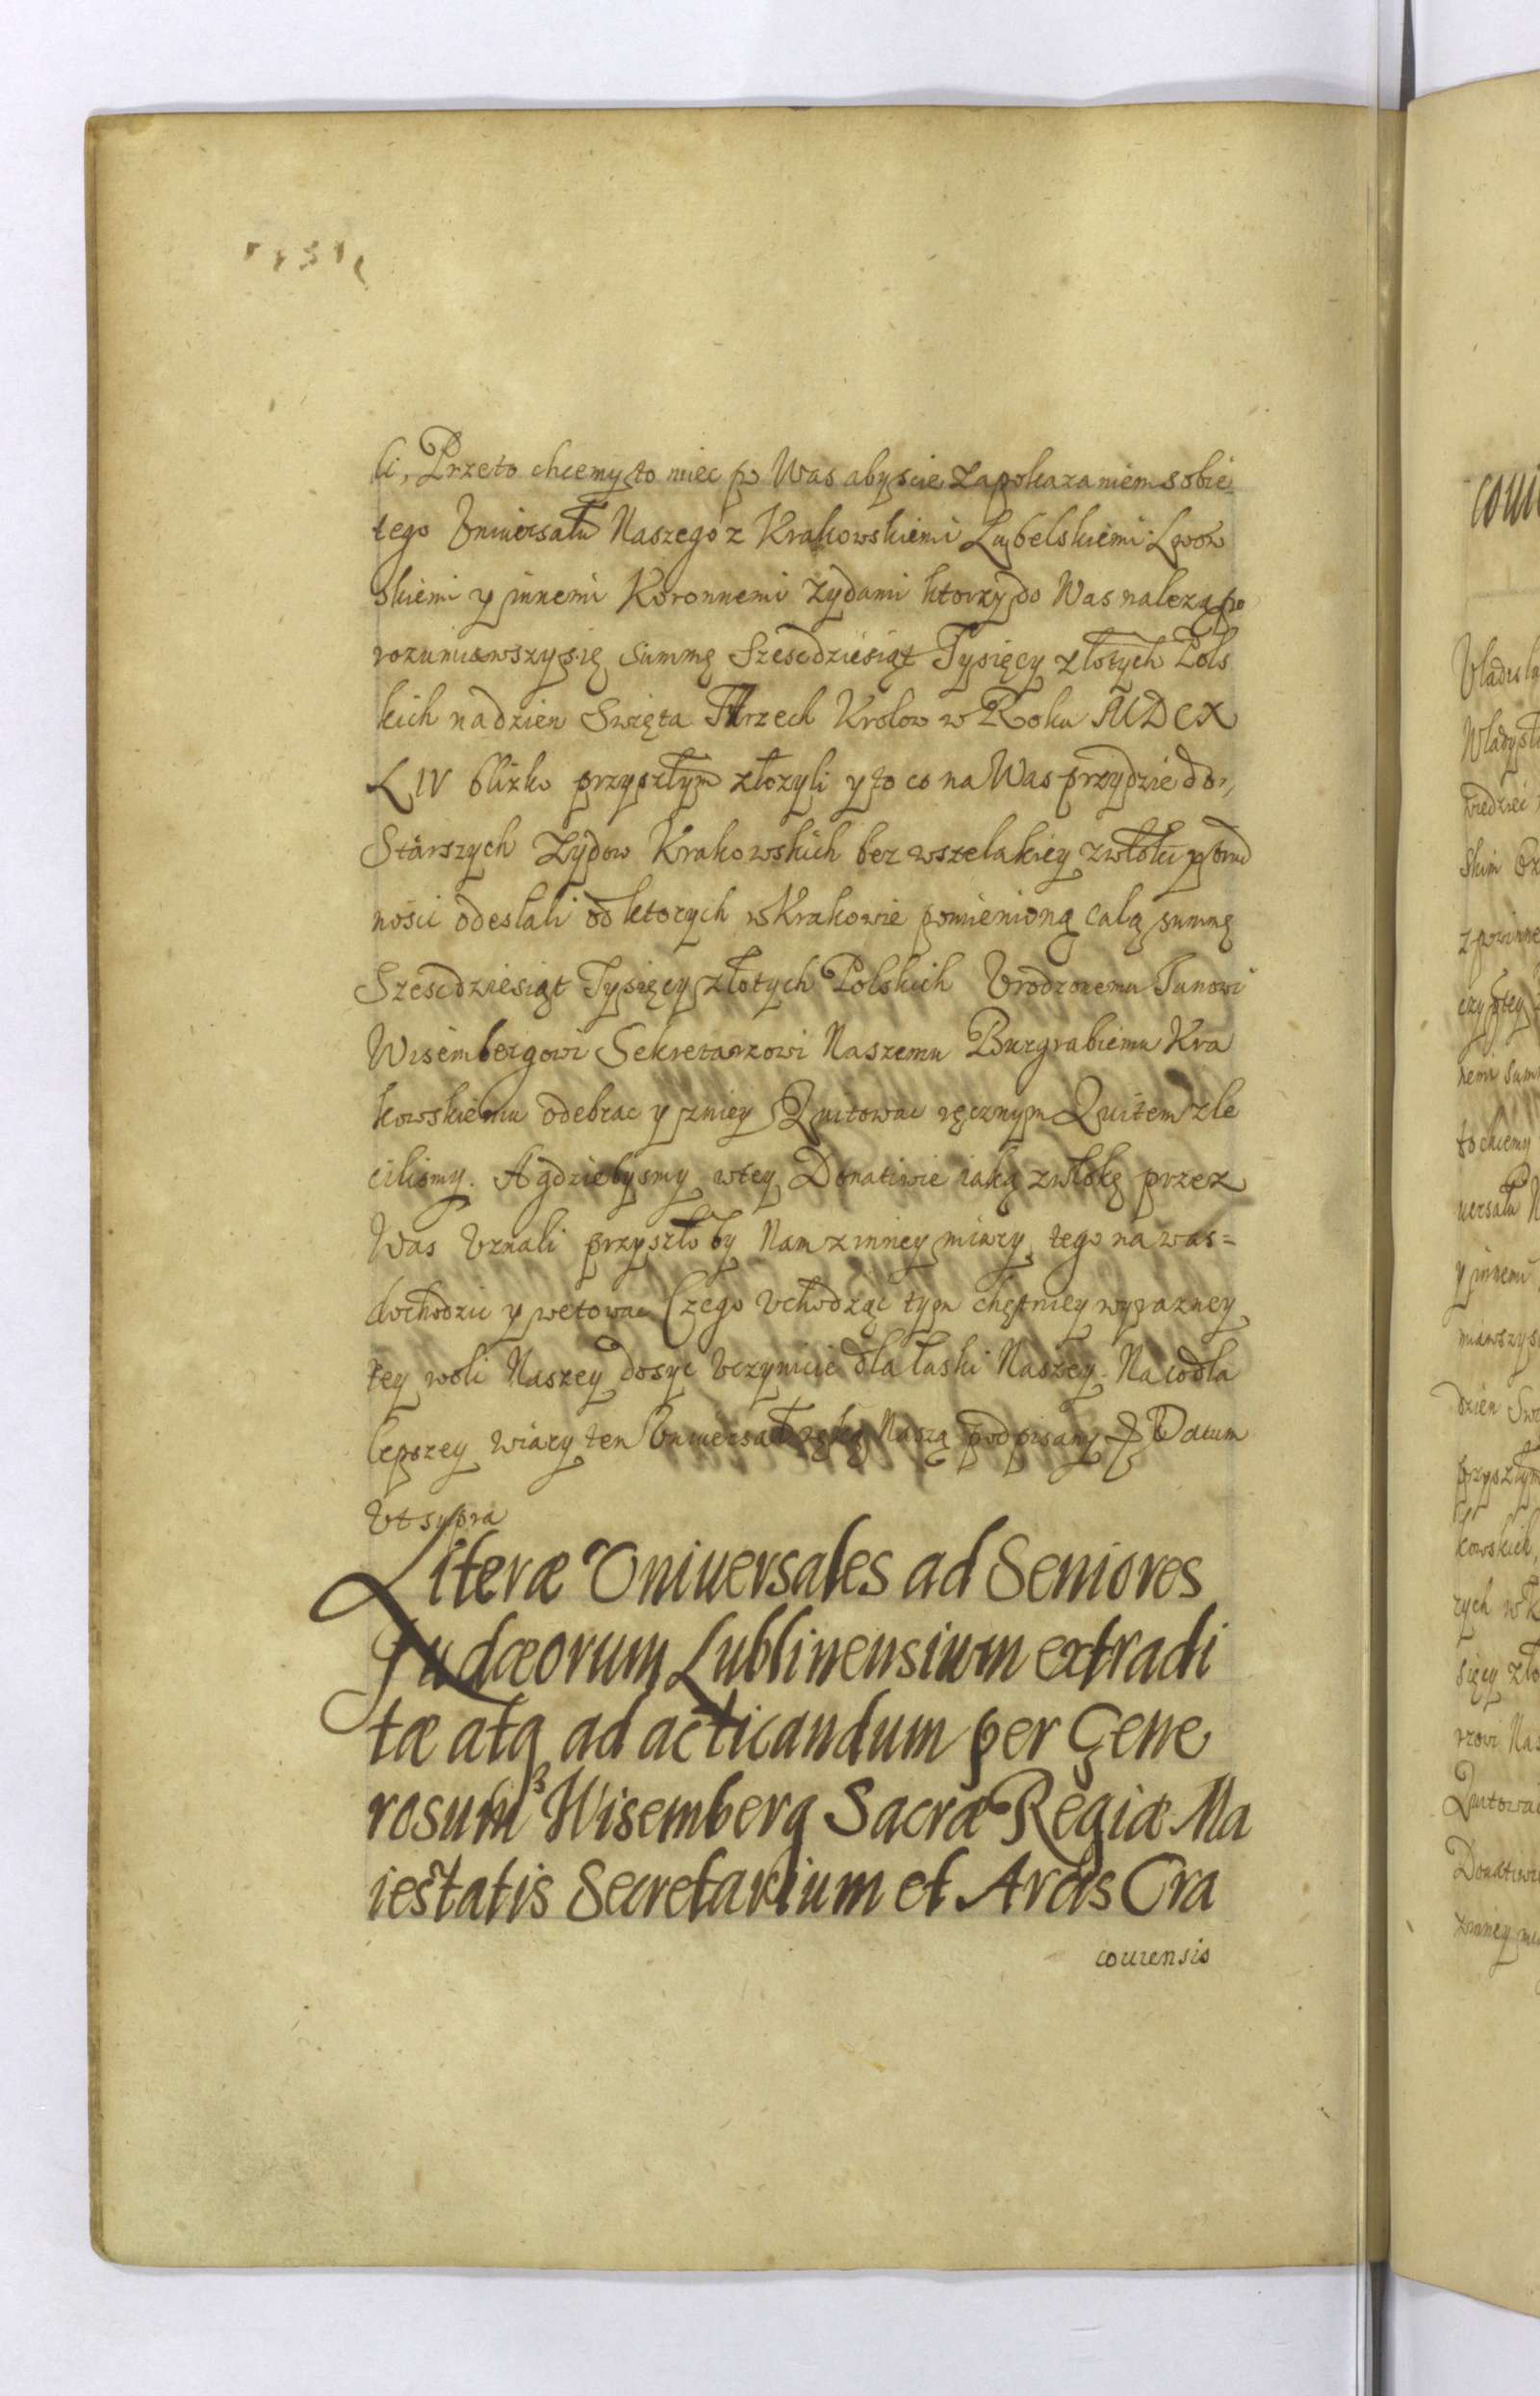 li, Przeto chcemy to miec po Was abyscie za pokazaniem sobie
tego Vniuersału Naszego z Krakowskiemi Lubelskiemi Lwow
skiemi y innemi Koronnemi Zydami ktorzy do Was nalezą po
rozumiawszy się summę Szescdziesiąt Tysięcy złotych Pols
kich na dzien Swięta Trzech Krolow w Roku MDCX
LIV blizko przyszłym złozyli y to co na Was przydzie do
Starszych Zydow Krakowskich bez wszelakiey zwłoki y trud
nosci odeslali od ktorych w Krakowie pomienioną całą summę
Szescdziesiąt Tysięcy złotych Polskich Vrodzonemu Janowi
Wisembergowi Sekretarzowi Naszemu Burgrabiemu Kra
kowskiemu odebrac y zniey Quitowac ręcznym Quitem zle
cilismy. A gdziebysmy wtey Donatiwie iaką zwłokę przez
Was Vznali przyszło by Nam z inney miary tego na was=
dochodzic y wetowac Czego Vchodząc tym chętniey wyrazney
tey woli Naszey dosyc Vczynicie dla łaski Naszey. Na co dla
lepszey wiary ten Vniuersał ręką Naszą podpisany Datum
Vt supra
Literæ Vniuersales ad Seniores
Judæorum Lublinensium extradi
tæ atq ad acticandum per Gene
rosum Wisemberg Sacræ Regiæ Ma
iestatis Secretarium et Arcis Cra
couiensis